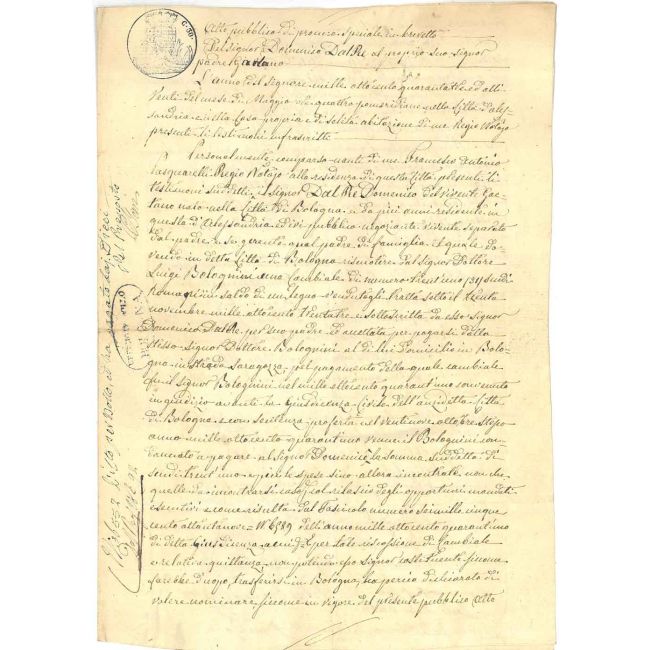 Atto pubblico di procura speciale in brevetto
Del Signor Domenico Dal Re al proprio suo signor
padre Gaetano
L'anno del Signore mille ottocento quarantatre ed alli
Venti del mese di Maggio ole quattro pomeridiane nella Città d'ales-
sandria e nella Casa propria e di solita abitazione di me Regio Notajo
presenti li testimonj infrascritti
Personalmente comparso nanti di me Francesco Antonio
Pasquarelli Regio Notajo alla residenza di questa Città presenti li
testimonj suddetti, il signor Dal Re Domenico del vivente Gae-
tano nato nella Città di Bologna e da più anni residente in
questa d'Alessandria ed ivi pubblico negoziante vivente separato
dal padre e se gerente qual padre di famiglia, il quale do-
vendo in detta Città di Bologna riscuotere dal signor Dottore
Luigi Bolognini una Cambiale di numero trent'uno (31) scudi
Romani in saldo di un legno vendutogli tratta sotto il trenta
novembre mille ottocento trentatre e sottoscritta da esso signor
Domenico Dal Re per suo padre ed accettata per pagarsi dallo
stesso signor Dottore Bolognini al di lui Domicilio in Bolo-
gna in strada Saragozza, pel pagamento della quale cambiale
fu il signor Bolognini nel mille ottocento quarant'uno convenuto
in giudizio avanti la Giusdicenza Civile dell'anzidetta Città
di Bologna e con sentenza proferta nel ventinove ottobre stesso
anno mille ottocento quarantuno venne il Bolognini con-
dannato a pagare al signor Domenico la somma suddetta di
scudi trent'uno e più le spese sino allora incontrate non che
quelle da incontrarsi col rilascio degli opportuni mandati
esecutivi e come risulta dal Fascicolo numero sei mille cinque
cento ottantanove = N° 6589 dell'anno mille ottocento quarantuno
di detta Giusdicenza, e per tale riscossione di Cambiale
e relativa quittanza non potendo esso signor costituente siccome
farebbe d'uopo, trasferirsi in Bologna, ha perciò dichiarato di
volere nominare siccome in vigore del presente pubblico Atto